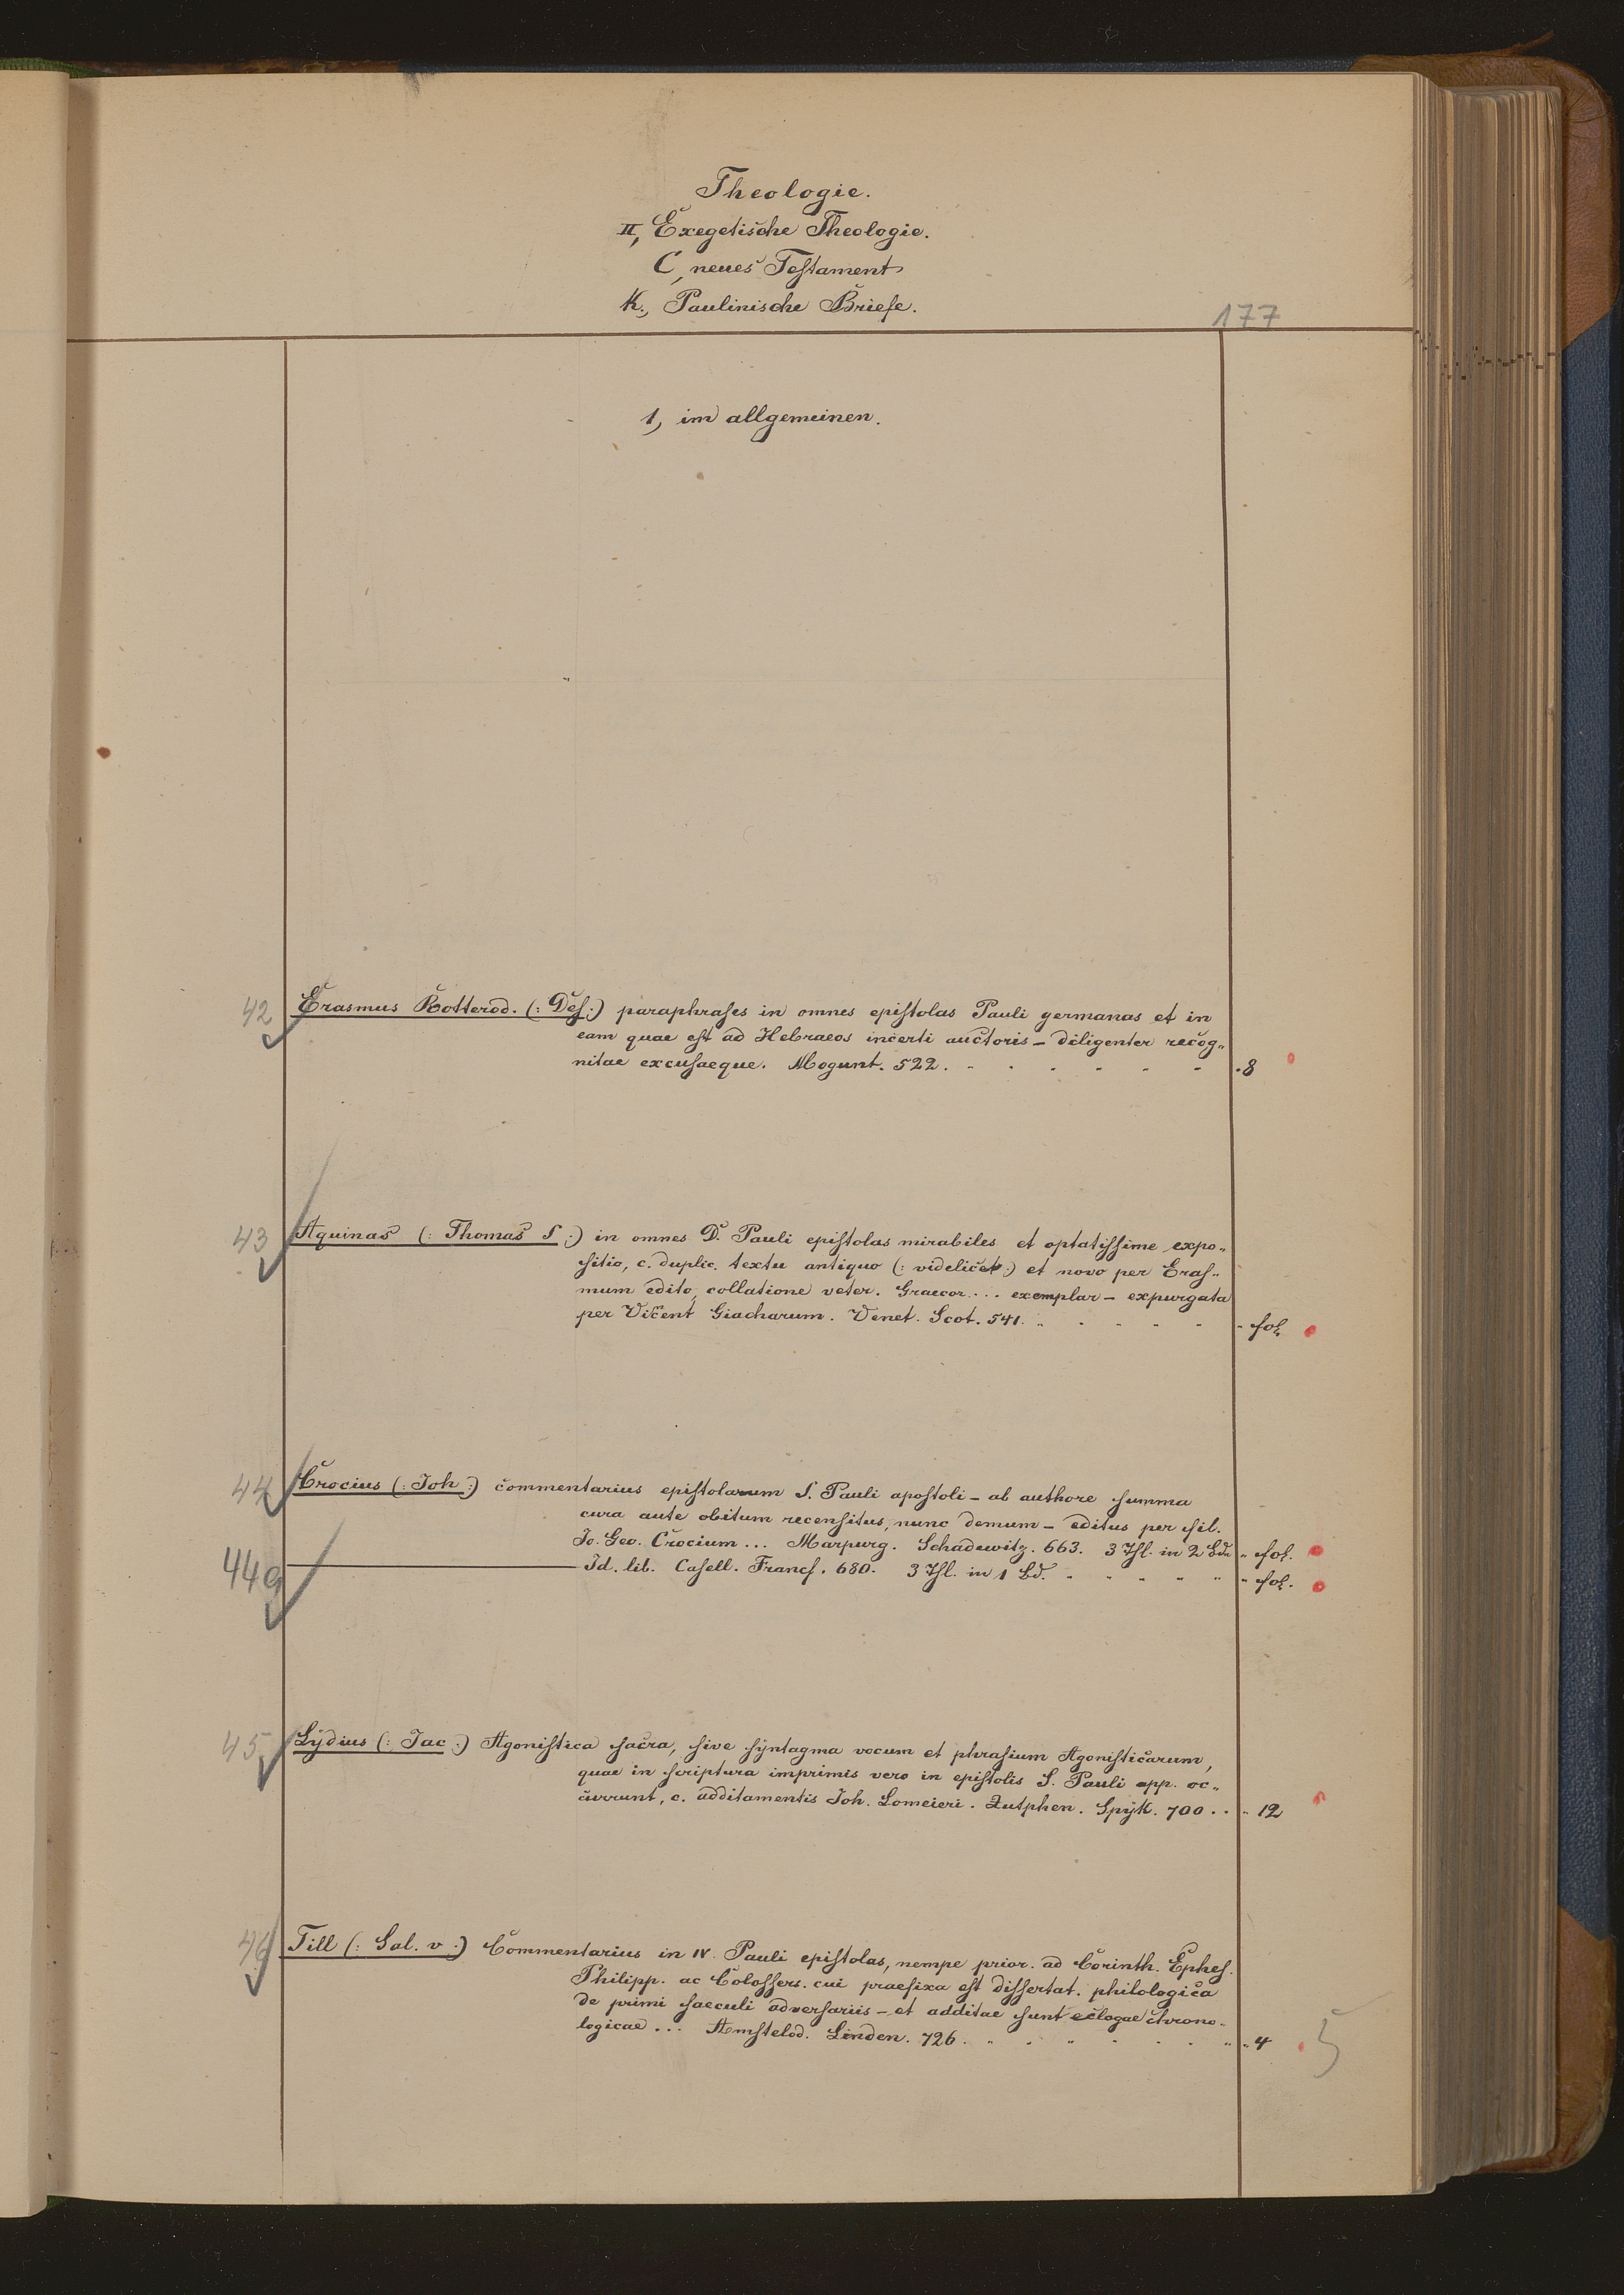 Theologie.
II, Exegetische Theologie.
C, neues Testament
K., Paulinische Briefe.
177
1, im allgemeinen.
42 Erasmus Rotterod. (: Des :) paraphrases in omnes epistolas Pauli germanas et in
eam quae est ad Hebraeos incerti auctoris – diligenter recog„
nitae excusaeque. Mogunt. 522. 8
43 Aquinas (: Thomas S :) in omnes D. Pauli epistolas mirabiles et optatissime expo„
sitio, c. duplic. textu antiquo (: videlicet :) et novo per Eras„
mum edito, collatione veter. Graecor... exemplar – expurgata
per Vicent Giacharum. Venet. Scot. 541. fol.
44 Crocius (: Joh :) commentarius epistolarum S. Pauli apostoli – ab authore summa
cura ante obitum recensitus, nunc demum – editus per fil.
Jo. Geo. Crocium ... Marpurg. Schadewitz. 663. 3 Thl. in 2 Bdn fol.
44a ——— Id. lib. Casell. Francf. 680. 3 Thl. in 1 Bd. fol.
45 Lydius (: Jac :) Agonistica sacra, sive syntagma vocum et phrasium Agonisticarum,
quae in scriptura imprimis vero in epistolis S. Pauli app. oc„
currunt, c. additamentis Joh. Lomeieri. Zutphen. Spÿk. 700 . . 12
46 Till (: Sal. v :) Commentarius in IV. Pauli epistolas, nempe prior. ad Corinth. Ephes.
Philipp. ac Colossers. cui praefixa est dissertat. philologica
de primi saeculi adversariis – et additae sunt eclogae chrono„
logicae ... Amstelod. Linden. 726. 4 5